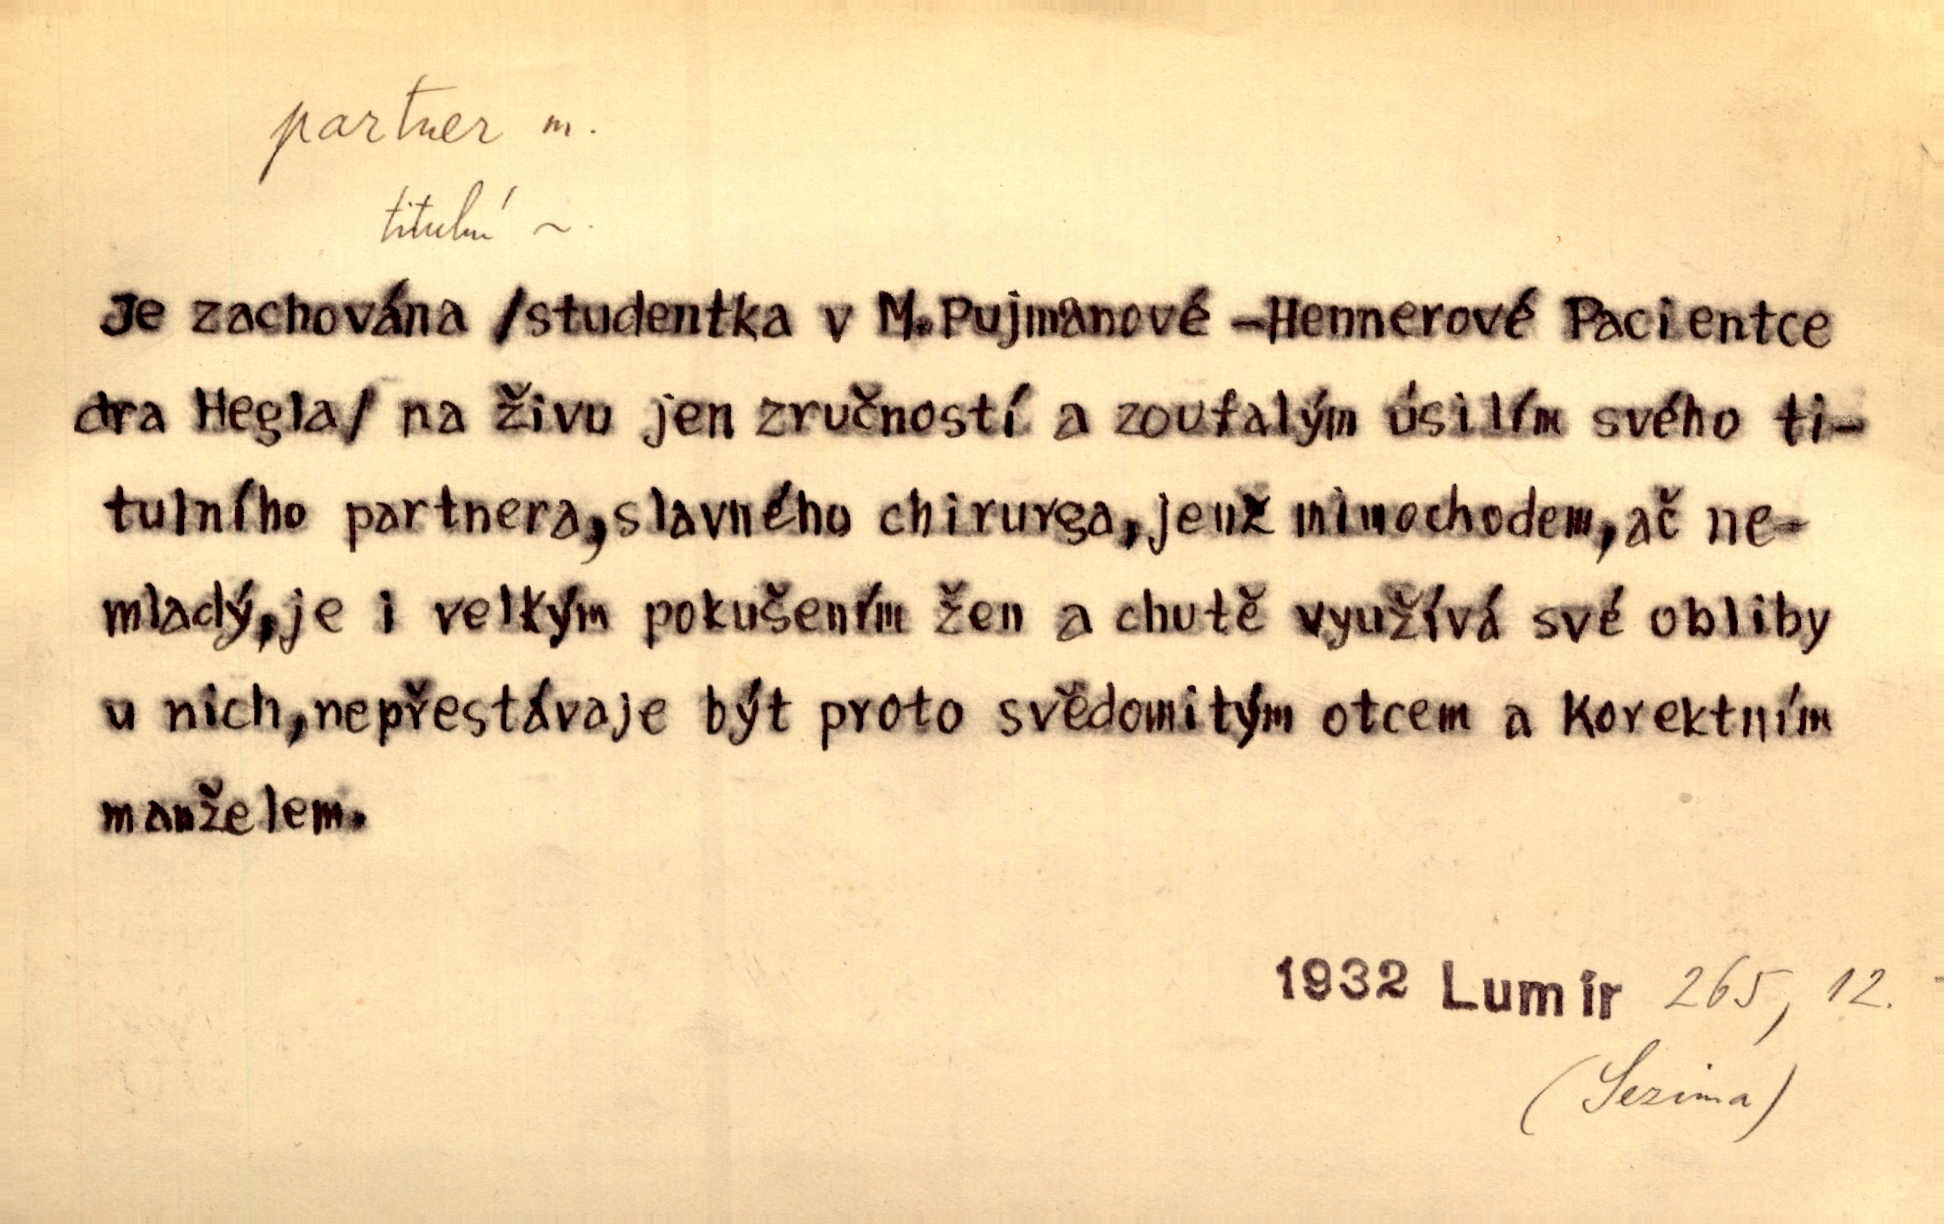 partner m.
titulní ~.
Je zachována /studentka v M.Pujmanové -Hennerové Pacientce
dra Hegla/ na živu jen zručností a zoufalým úsilím svého ti-
tulního partnera,slavného chirurga,jenž mimochodem,ač ne-
mladý,je i velkým pokušením žen a chutě využívá své obliby
u nich,nepřestávaje být proto svědomitým otcem a korektním
manželem.
1932 Lumír 265, 12.
(Sezima)